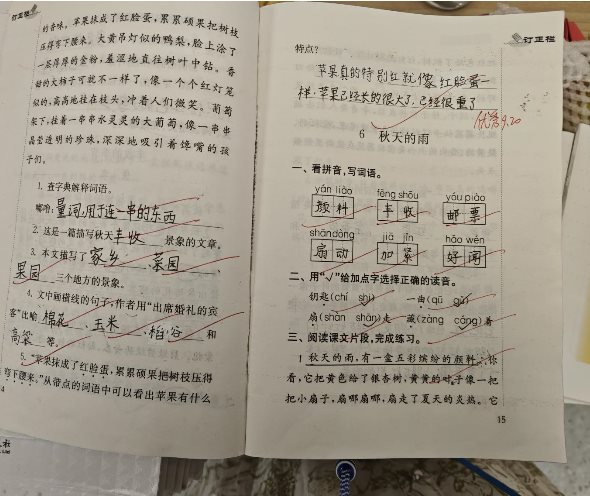 订正栏
的香味，苹果抹成了红脸蛋，累累硕果把树枝
压得弯下腰来。大黄吊灯似的鸭梨，脸上涂了
一层厚厚的金粉，羞涩地直往树叶中钻。香
甜的大柿子可就不一样了，像一个个红灯笼
似的，高高地挂在枝头，冲着人们微笑。葡萄
架下，挂着一串串水灵灵的大葡萄，像一串串
晶莹透明的珍珠，深深地吸引着馋嘴的孩
子们。
1. 查字典解释词语。
嘟噜：量词，用于连一串的东西
2. 这是一篇描写秋天丰收景象的文章。
3. 本文描写了家乡、菜园、
果园三个地方的景象。
4. 文中画横线的句子，作者用“出席婚礼的宾
客”比喻棉花、玉米、稻谷和
高粱等。
5. “苹果抹成了红脸蛋，累累硕果把树枝压得
弯下腰来。”从带点的词语中可以看出苹果有什么
订正栏
特点？
苹果真的特别红就像红脸蛋一
样，苹果已经长的很大了，已经很重了
优 9.20
6 秋天的雨
一、看拼音，写词语。
yán liào fēng shōu yóu piào
颜料 丰收 邮票
shāndòng jiā jǐn hǎo wén
扇动 加紧 好闻
二、用“√”给加点字选择正确的读音。
扇(shān shàn)走 藏(zàng cáng)着
三、阅读课文片段，完成练习。
秋天的雨，有一盒五彩缤纷的颜料。你
看，它把黄色给了银杏树，黄黄的叶子像一把
把小扇子，扇哪扇哪，扇走了夏天的炎热。它
15